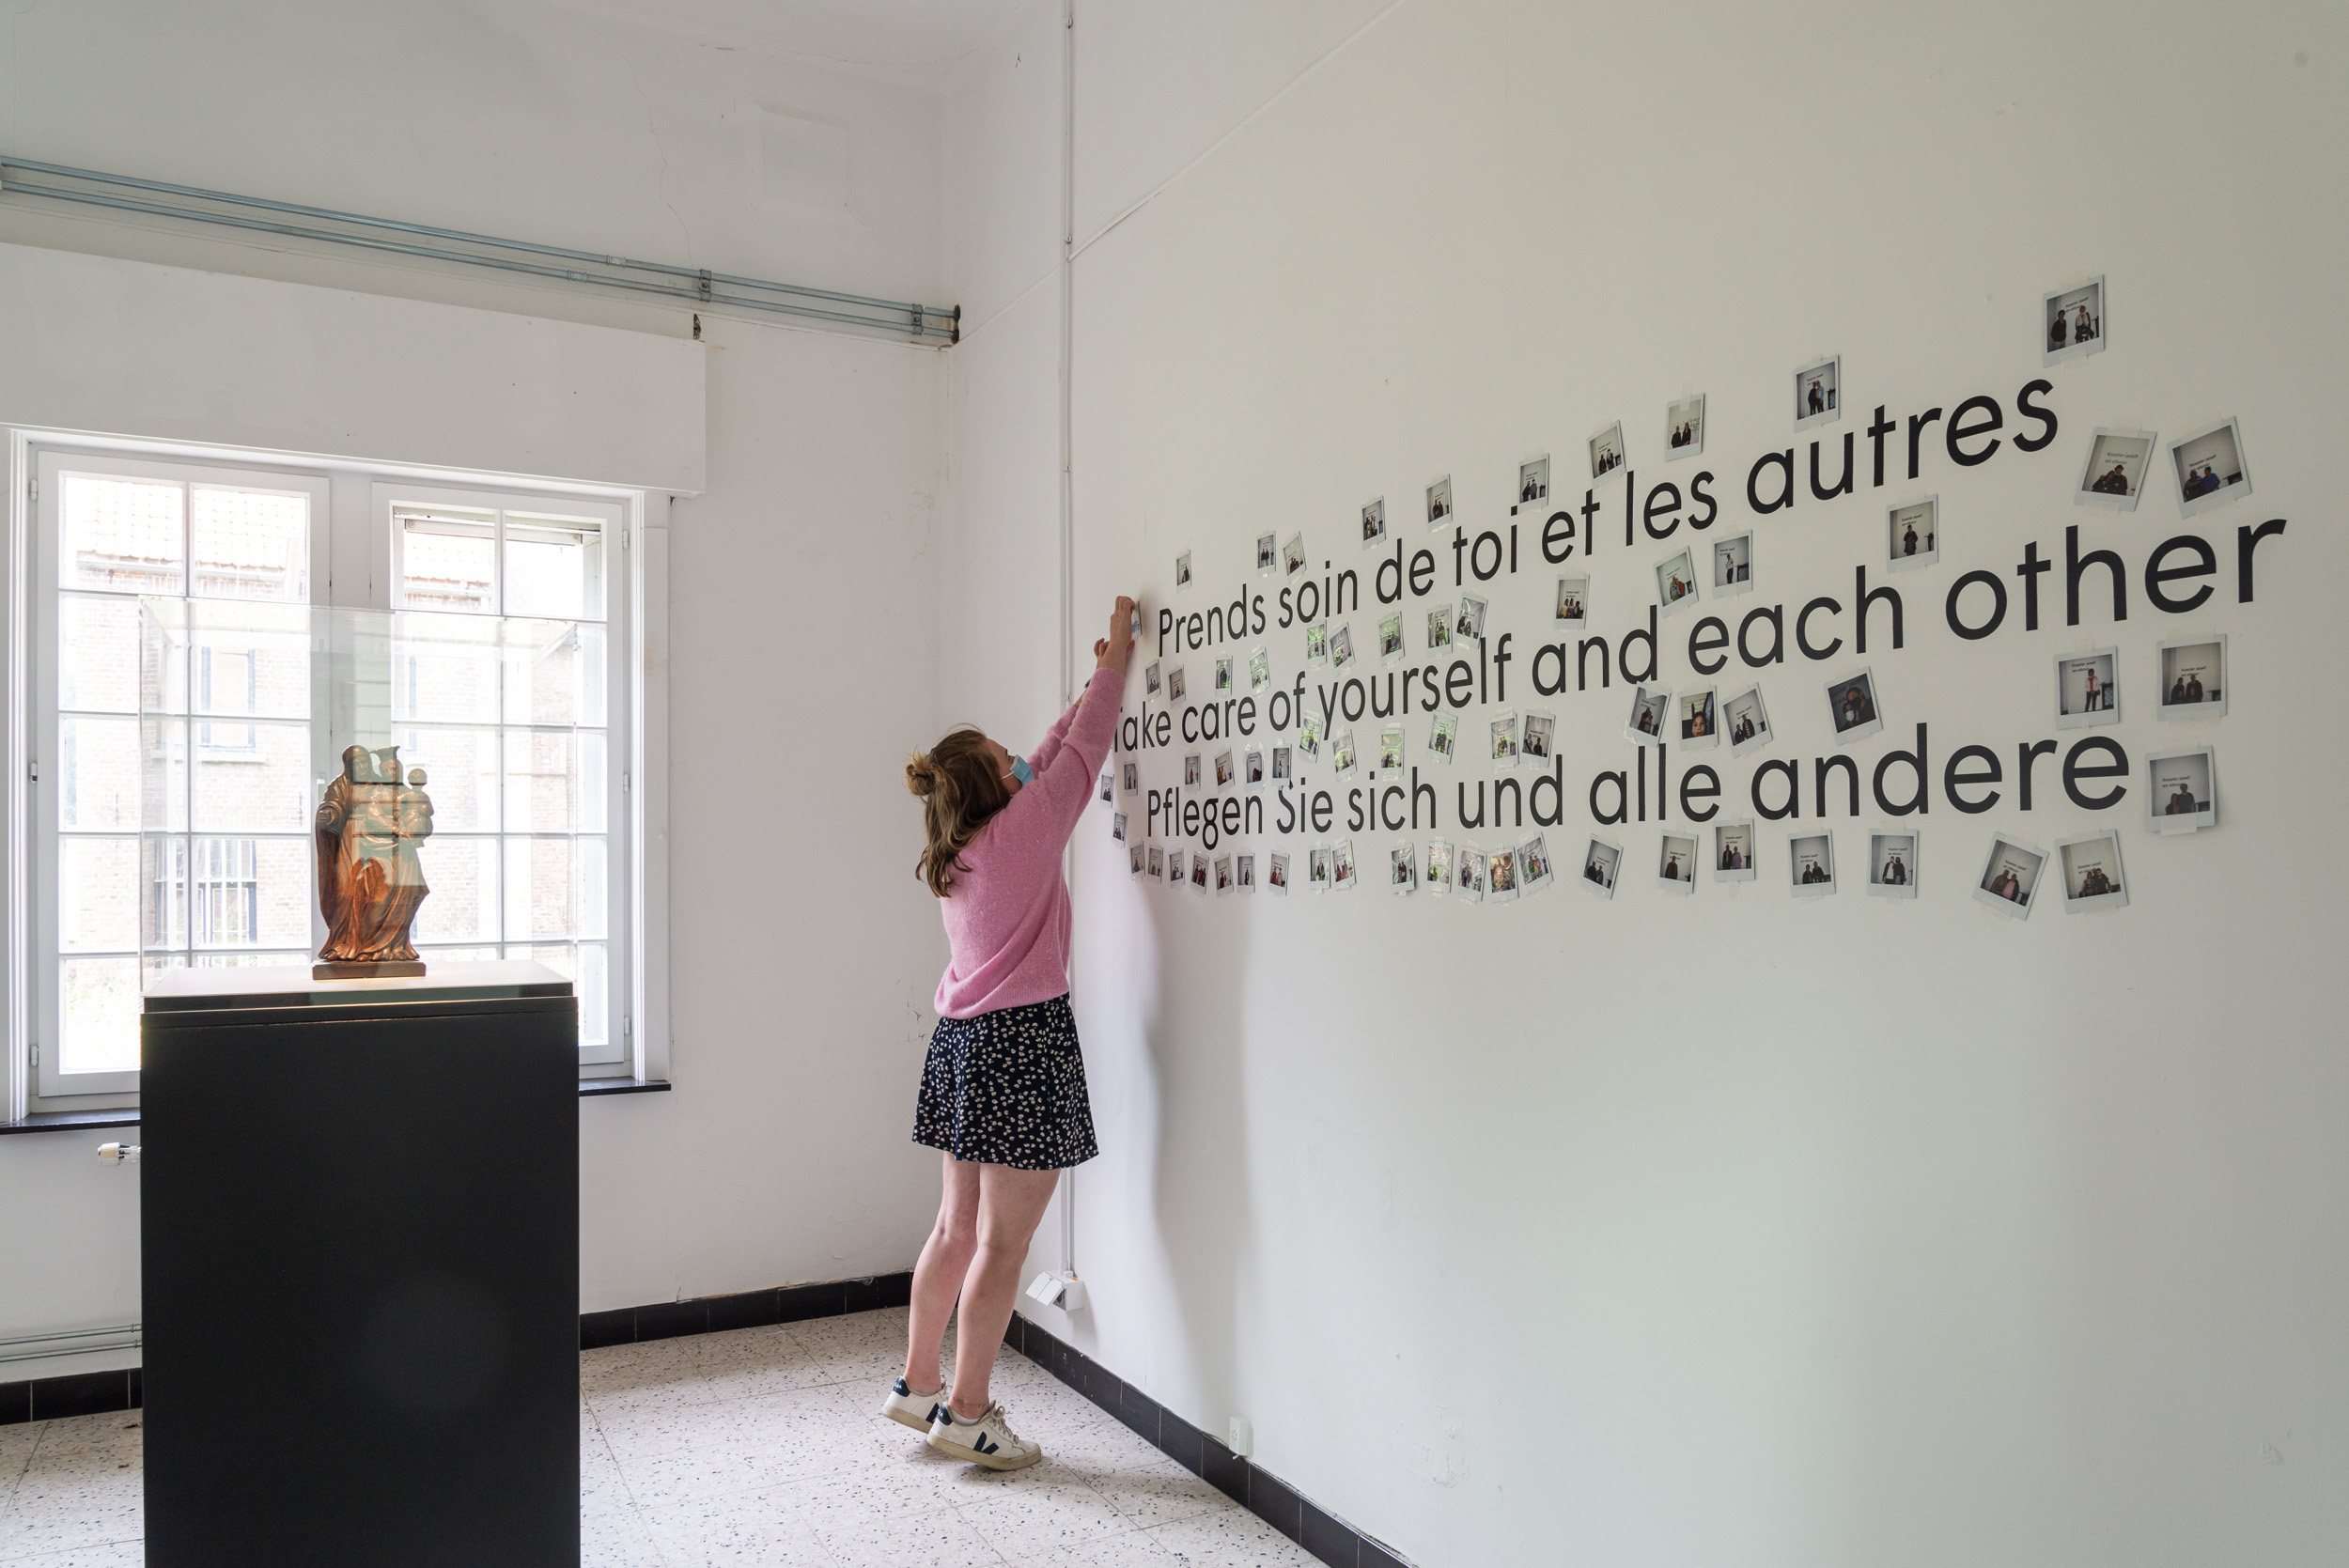 Prends soin de toi et les autres
Take care of yourself and each other
Pflegen Sie sich und alle andere